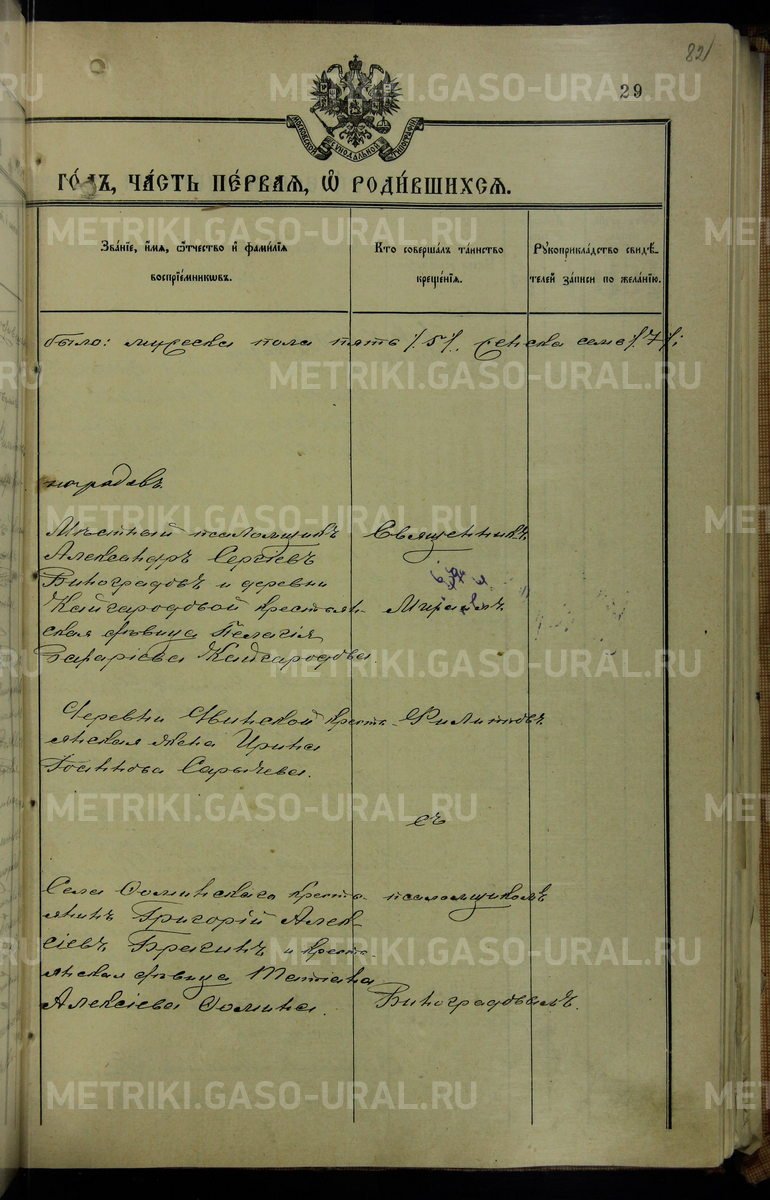 82
29
МОСКОВСКОЙ СѴНОДАЛЬНОЙ ТИПОГРАФІИ
ГО́ДЪ, ЧА́СТЬ ПЕ́РВАѦ, Ѡ҆ РОДИ́ВШИХСѦ.
Зва́нїе, и҆́мѧ, ѻ҆́тчество и҆ фами́лїѧ
воспрїе́мникѡвъ.
Кто̀ соверша́лъ та́инство
креще́нїѧ.
Рꙋкоприкла́дство свидѣ́-
телей за́писи по жела́нїю.
было: мужеска пола пять /.5./., женска семь /.7./.;
Мѣстный псаломщикъ
Александръ Сергіевъ
Виноградовъ и деревни
Кайгородовой крестьян-
ская дѣвица Пелагія
Захаріева Кайгародова.
Священникъ
Михаилъ
Деревни Свинской кресть-
янская жена Ирина
Іоаннова Сарычева.
Филиповъ
съ
Села Фоминскаго кресть-
янинъ Григорій Алек-
сіевъ Брагинъ и кресть-
янская дѣвица Татіана
Алексіева Фомина.
псаломщикомъ
Виноградовымъ.
METRIKI.GASO-URAL.RU